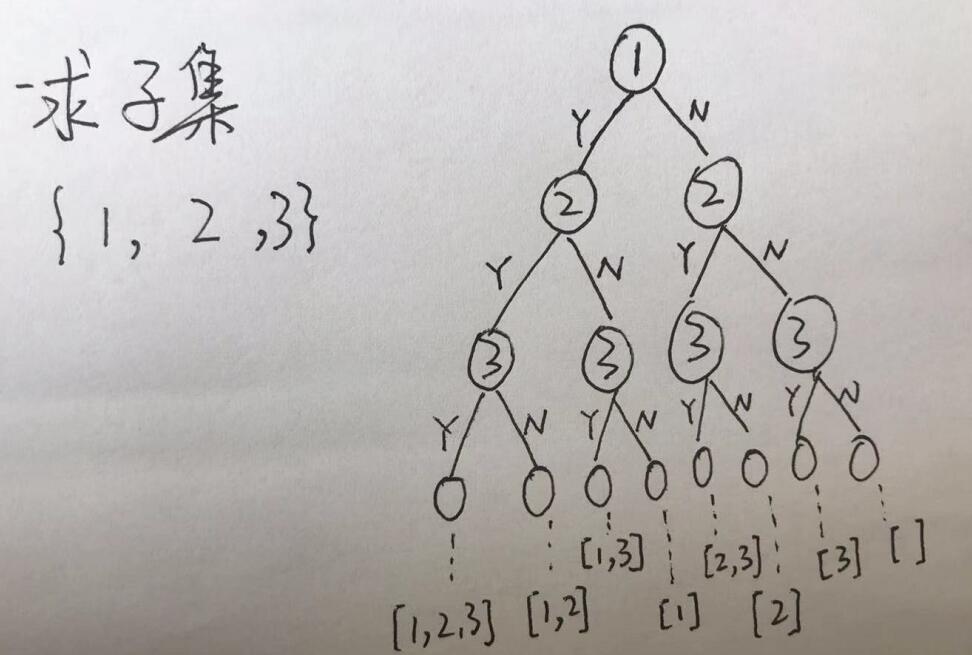 求子集
{1, 2, 3}
1
Y N
2 2
Y N Y N
3 3 3 3
Y N Y N Y N Y N
[1,3] [2,3] [3] [ ]
[1,2,3] [1,2] [1] [2]